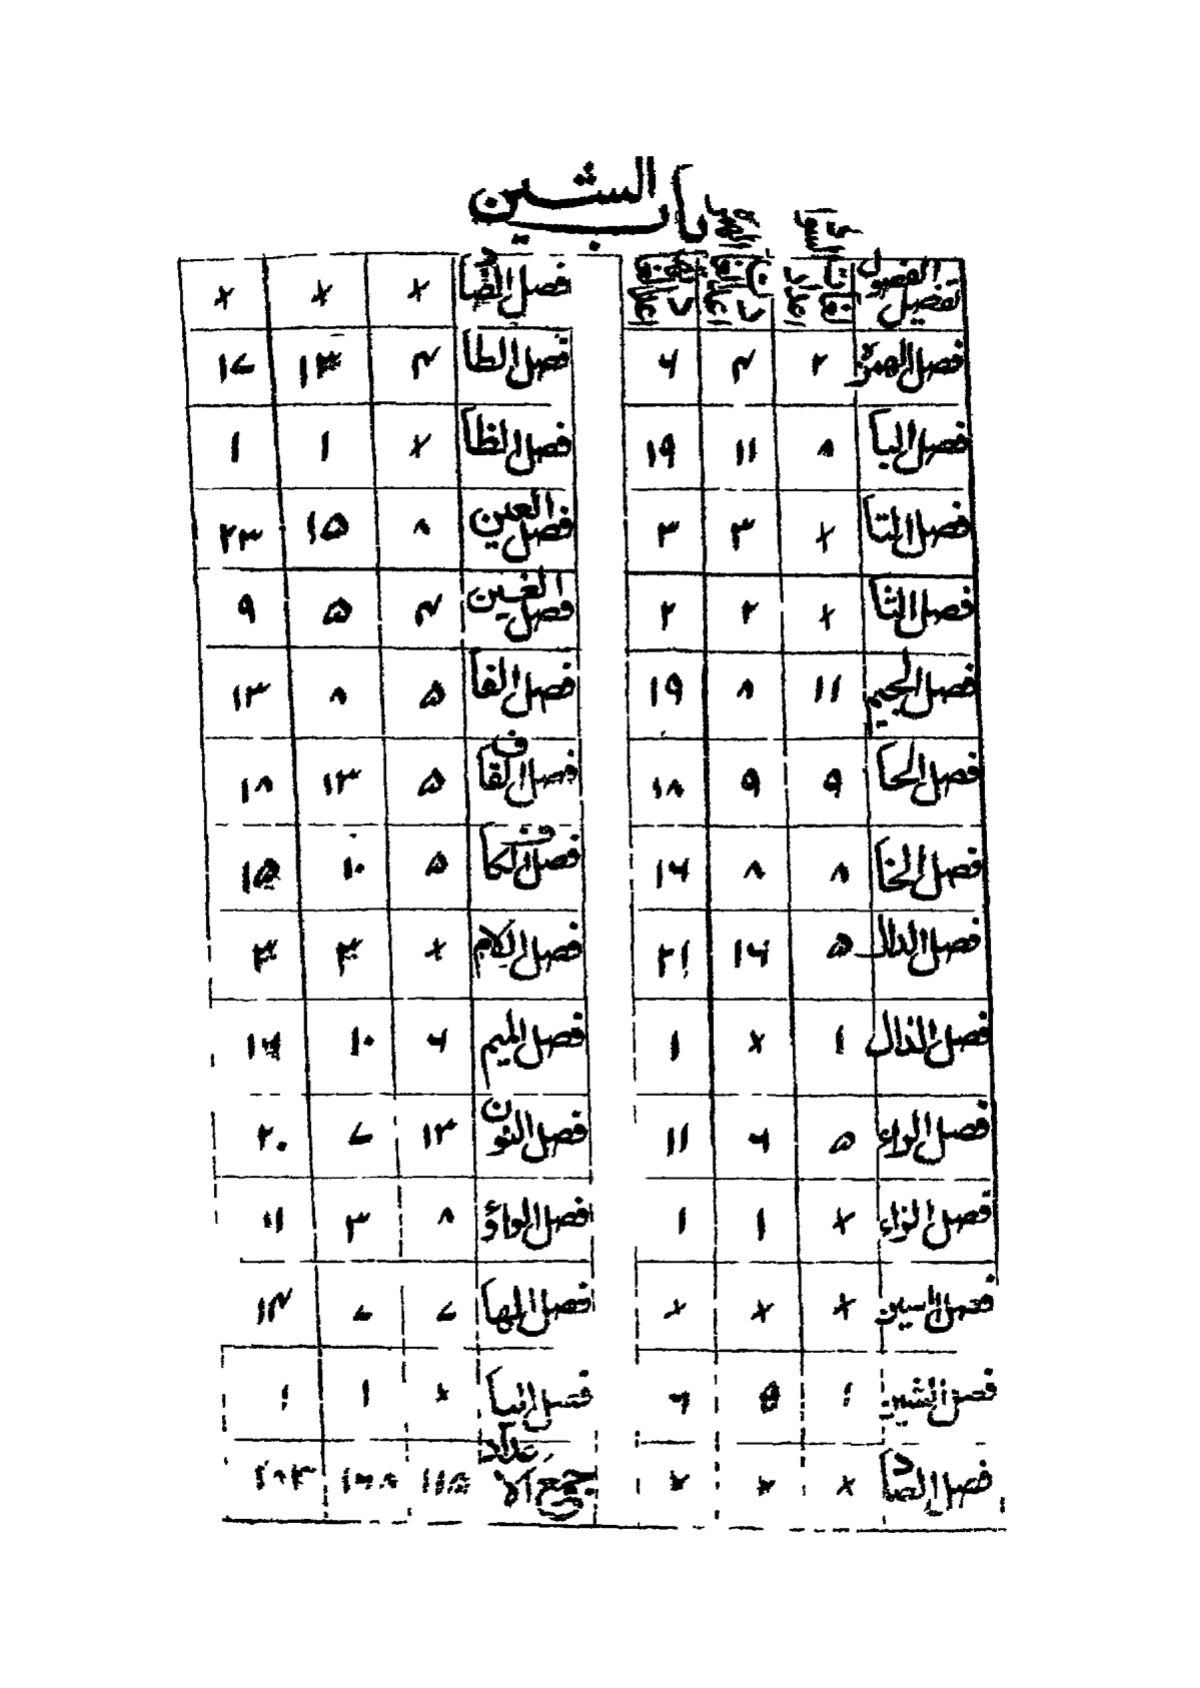 باب الشين
تفصيل الفصول
فصل الهمزة ٢ ۴ ۶
فصل البا ٨ ١١ ١٩
فصل التا × ٣ ٣
فصل الثا × ٢ ٢
فصل الجيم ١١ ٨ ١٩
فصل الحا ٩ ٩ ١٨
فصل الخا ٨ ٨ ١۶
فصل الدال ۵ ١۶ ٢١
فصل الذال ١ × ١
فصل الراء ۵ ۶ ١١
فصل الزاء × ١ ١
فصل السين × × ×
فصل الشين ١ ۵ ۶
فصل الصاد × × ×
فصل الضاد × × ×
فصل الطا ۴ ١٣ ١٧
فصل الظا × ١ ١
فصل العين ٨ ١۵ ٢٣
فصل الغين ۴ ۵ ٩
فصل الفا ۵ ٨ ١٣
فصل القاف ۵ ١٣ ١٨
فصل الكاف ۵ ١٠ ١۵
فصل اللام × ٣ ٣
فصل الميم ۶ ١٠ ١۶
فصل النون ١٣ ٧ ٢٠
فصل الواؤ ٨ ٣ ١١
فصل الها ٧ ٧ ١۴
فصل اليا × ١ ١
جمع الأعداد ١١۵